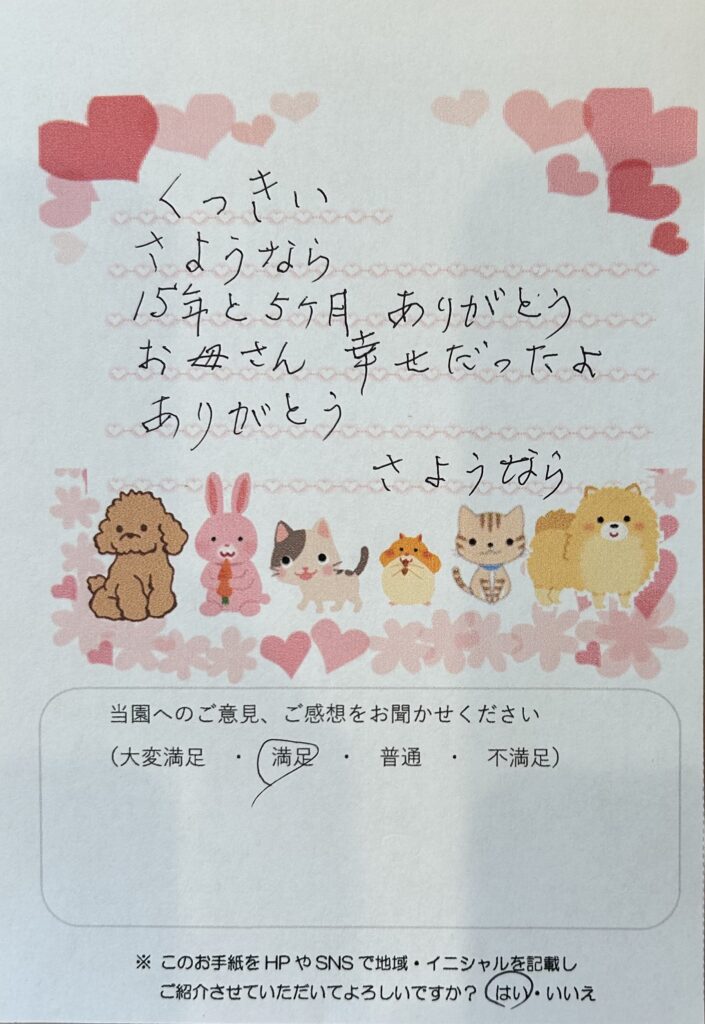 くっきい
さようなら
15年と5ケ月 ありがとう
お母さん 幸せだったよ
ありがとう
さようなら
当園へのご意見、ご感想をお聞かせください
(大変満足 ・ 満足 ・ 普通 ・ 不満足)
※ このお手紙をHPやSNSで地域・イニシャルを記載し
ご紹介させていただいてよろしいですか? はい・いいえ